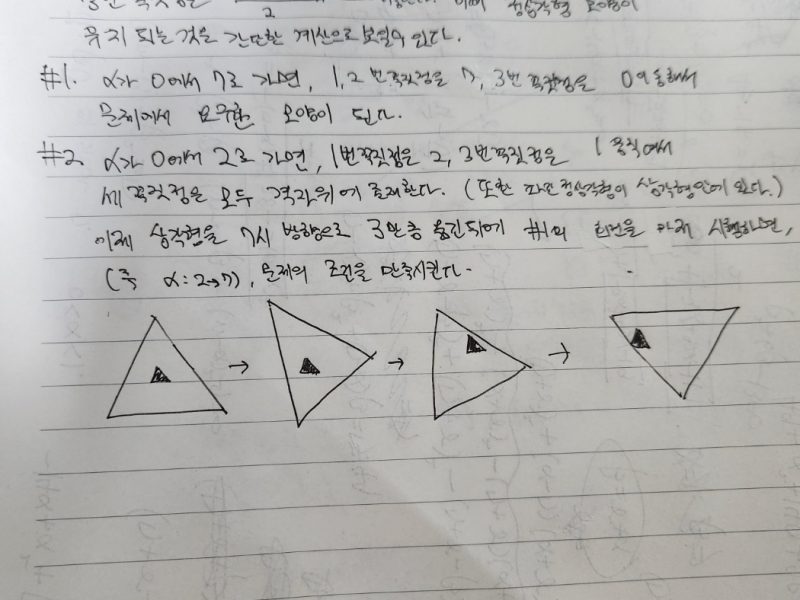 유지 되는 것을 간단한 계산으로 보일 수 있다.
#1. α가 0에서 7로 가면, 1, 2번 꼭짓점은 7, 3번 꼭짓점은 0이 동해서
문제에서 요구한 모양이 된다.
#2 α가 0에서 2로 가면, 1번꼭짓점은 2, 3번꼭짓점은 1 움직여
세 꼭짓점은 모두 격자위에 존재한다. (또한 파란정삼각형이 삼각형안에 있다.)
이제 삼각형을 7시 방향으로 3만큼 옮긴뒤에 #1의 회전을 마저 시행하면,
(즉 α: 2→7), 문제의 조건을 만족시킨다.